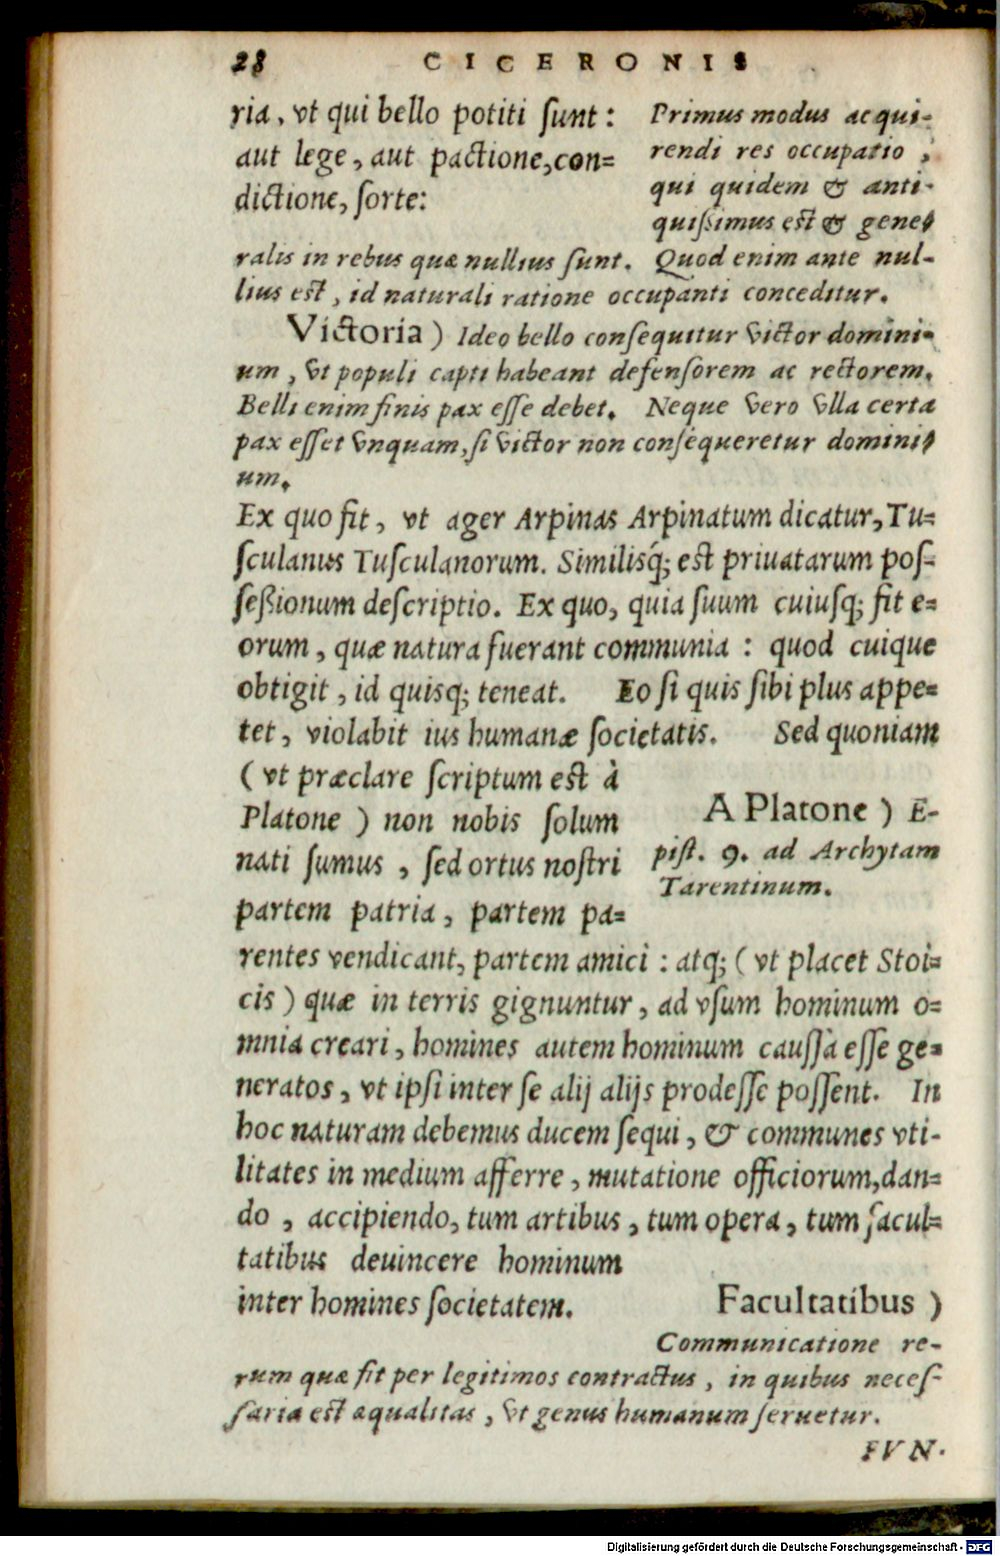 28 CICERONIS
ria, vt qui bello potiti ſunt:
aut lege, aut pactione, con=
dictione, ſorte:
Primus modus acqui-
rendi res occupatio,
qui quidem & anti-
quißimus est & gene-
ralis in rebus quæ nullius ſunt. Quod enim ante nul-
lius est, id naturali ratione occupanti conceditur.
Victoria) Ideo bello conſequitur victor domini-
um, vt populi capti habeant defenſorem ac rectorem.
Belli enim finis pax eſſe debet. Neque vero vlla certa
pax eſſet vnquam, ſi victor non conſequeretur domini-
um.
Ex quo fit, vt ager Arpinas Arpinatum dicatur, Tu=
ſculanus Tuſculanorum. Similisq́; est priuatarum poſ-
ſeßionum deſcriptio. Ex quo, quia ſuum cuiuſq; fit e=
orum, quæ natura fuerant communia: quod cuique
obtigit, id quisq; teneat. Eo ſi quis ſibi plus appe=
tet, violabit ius humanæ ſocietatis. Sed quoniam
(vt præclare ſcriptum est à
Platone) non nobis ſolum
nati ſumus, ſed ortus noſtri
partem patria, partem pa=
A Platone) E-
piſt. 9. ad Archytam
Tarentinum.
rentes vendicant, partem amici: atq; (vt placet Stoi=
cis) quæ in terris gignuntur, ad vſum hominum o=
mnia creari, homines autem hominum cauſſa eſſe ge=
neratos, vt ipſi inter ſe alij alijs prodeſſe poſſent. In
hoc naturam debemus ducem ſequi, & communes vti-
litates in medium afferre, mutatione officiorum, dan=
do, accipiendo, tum artibus, tum opera, tum facul=
tatibus deuincere hominum
inter homines ſocietatem.
Facultatibus)
Communicatione re-
rum quæ fit per legitimos contractus, in quibus neceſ-
ſaria est æqualitas, vt genus humanum ſeruetur.
FVN-
Digitalisierung gefördert durch die Deutsche Forschungsgemeinschaft - DFG